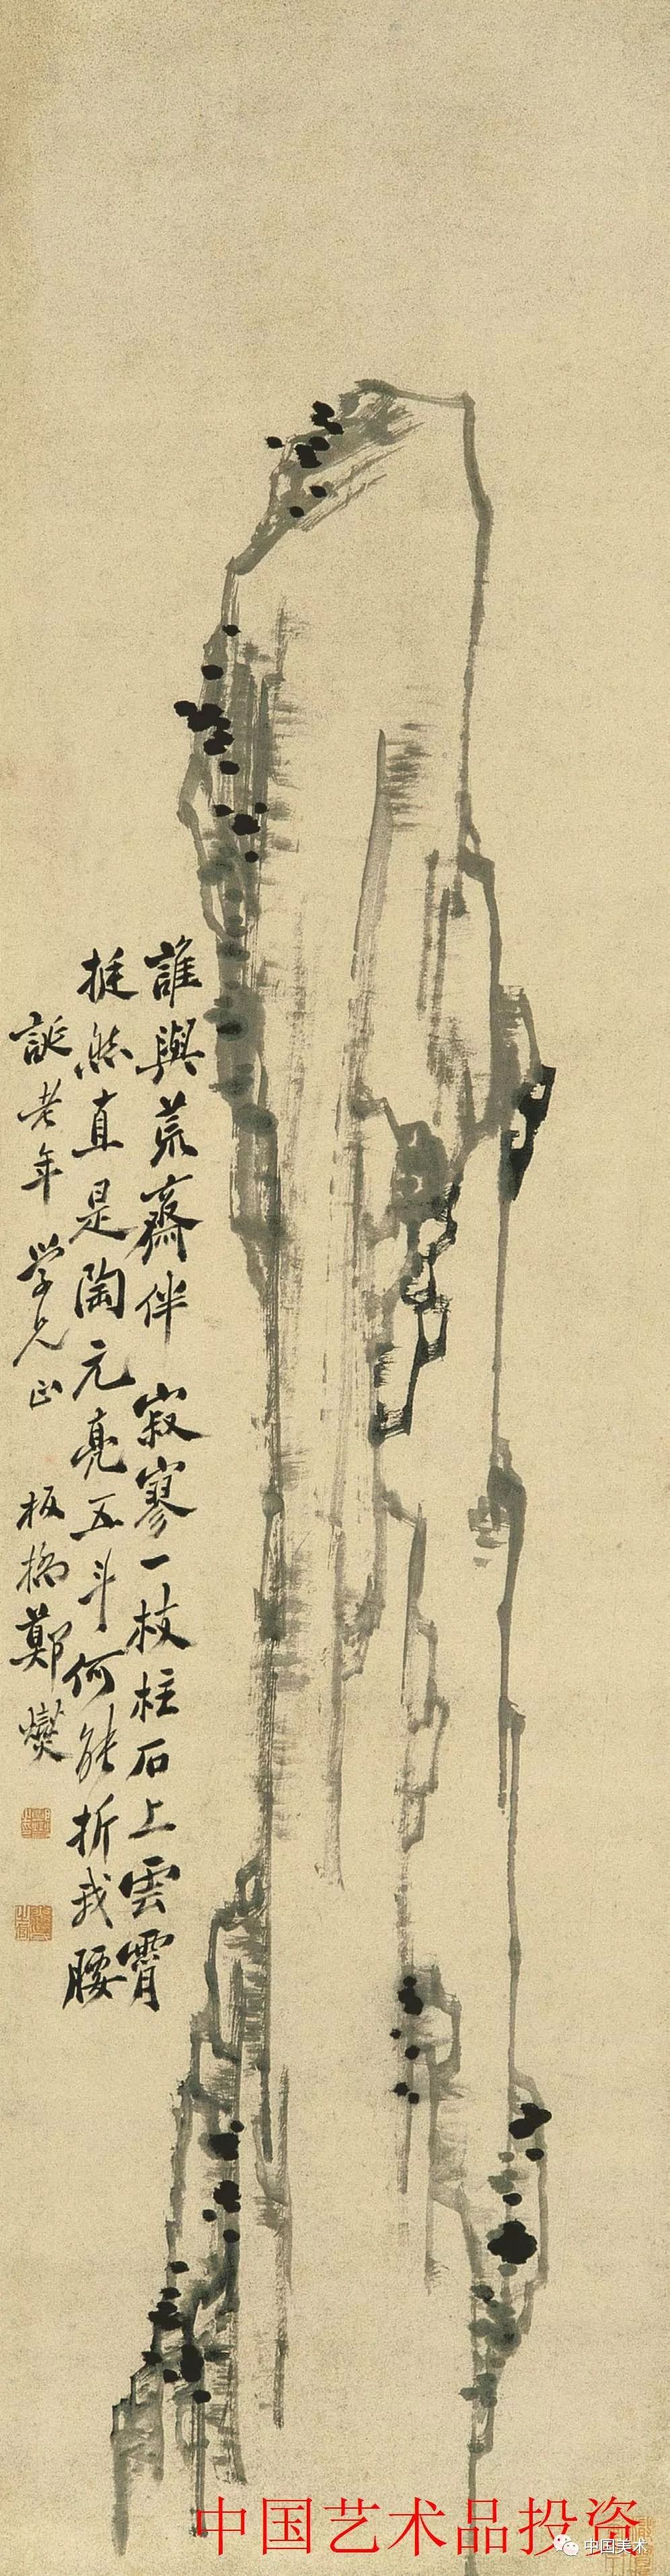 誰與荒齋伴寂寥一枝柱石上雲霄
挺然直是陶元亮五斗何能折我腰
誕老年学兄正 板橋鄭燮
中国艺术品投资
中国美术